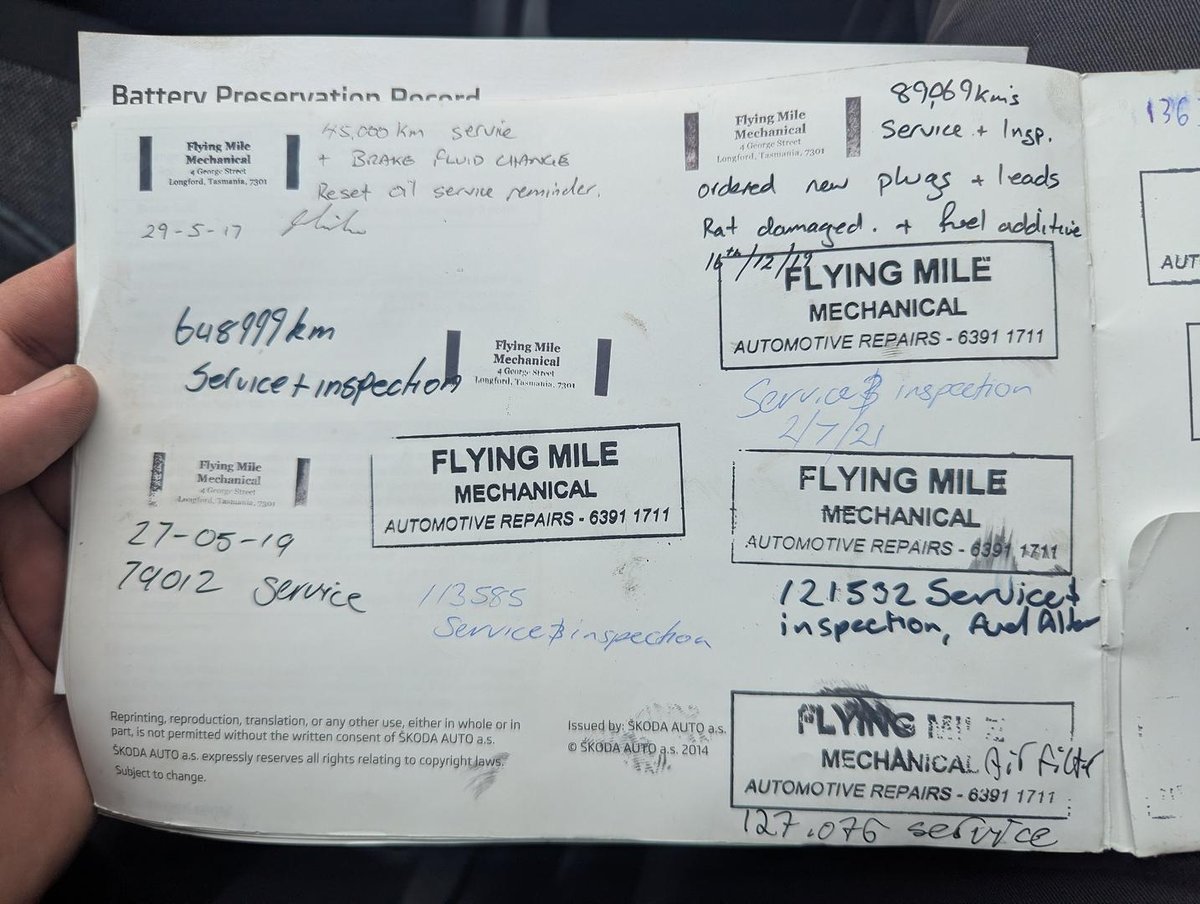 Battery Preservation Record
Flying Mile
Mechanical
4 George Street
Longford, Tasmania, 7301
45,000 km service
+ BRAKE FLUID CHANGE
Reset oil service reminder.
29-5-17
648999km
Service + inspection
Flying Mile
Mechanical
4 George Street
Longford, Tasmania, 7301
Flying Mile
Mechanical
4 George Street
Longford, Tasmania, 7301
27-05-19
79012 Service
FLYING MILE
MECHANICAL
AUTOMOTIVE REPAIRS - 6391 1711
113585
Service & inspection
Reprinting, reproduction, translation, or any other use, either in whole or in
part, is not permitted without the written consent of ŠKODA AUTO a.s.
ŠKODA AUTO a.s. expressly reserves all rights relating to copyright laws.
Subject to change.
Issued by: ŠKODA AUTO a.s.
© ŠKODA AUTO a.s. 2014
Flying Mile
Mechanical
4 George Street
Longford, Tasmania, 7301
89,069 kms
Service + Insp.
ordered new plugs + leads
Rat damaged. + fuel additive
16th/12/19
FLYING MILE
MECHANICAL
AUTOMOTIVE REPAIRS - 6391 1711
Service & inspection
2/7/21
FLYING MILE
MECHANICAL
AUTOMOTIVE REPAIRS - 6391 1711
121532 Service &
inspection,
FLYING MILE
MECHANICAL Air Filter
AUTOMOTIVE REPAIRS - 6391 1711
127.076 service
136
AUT